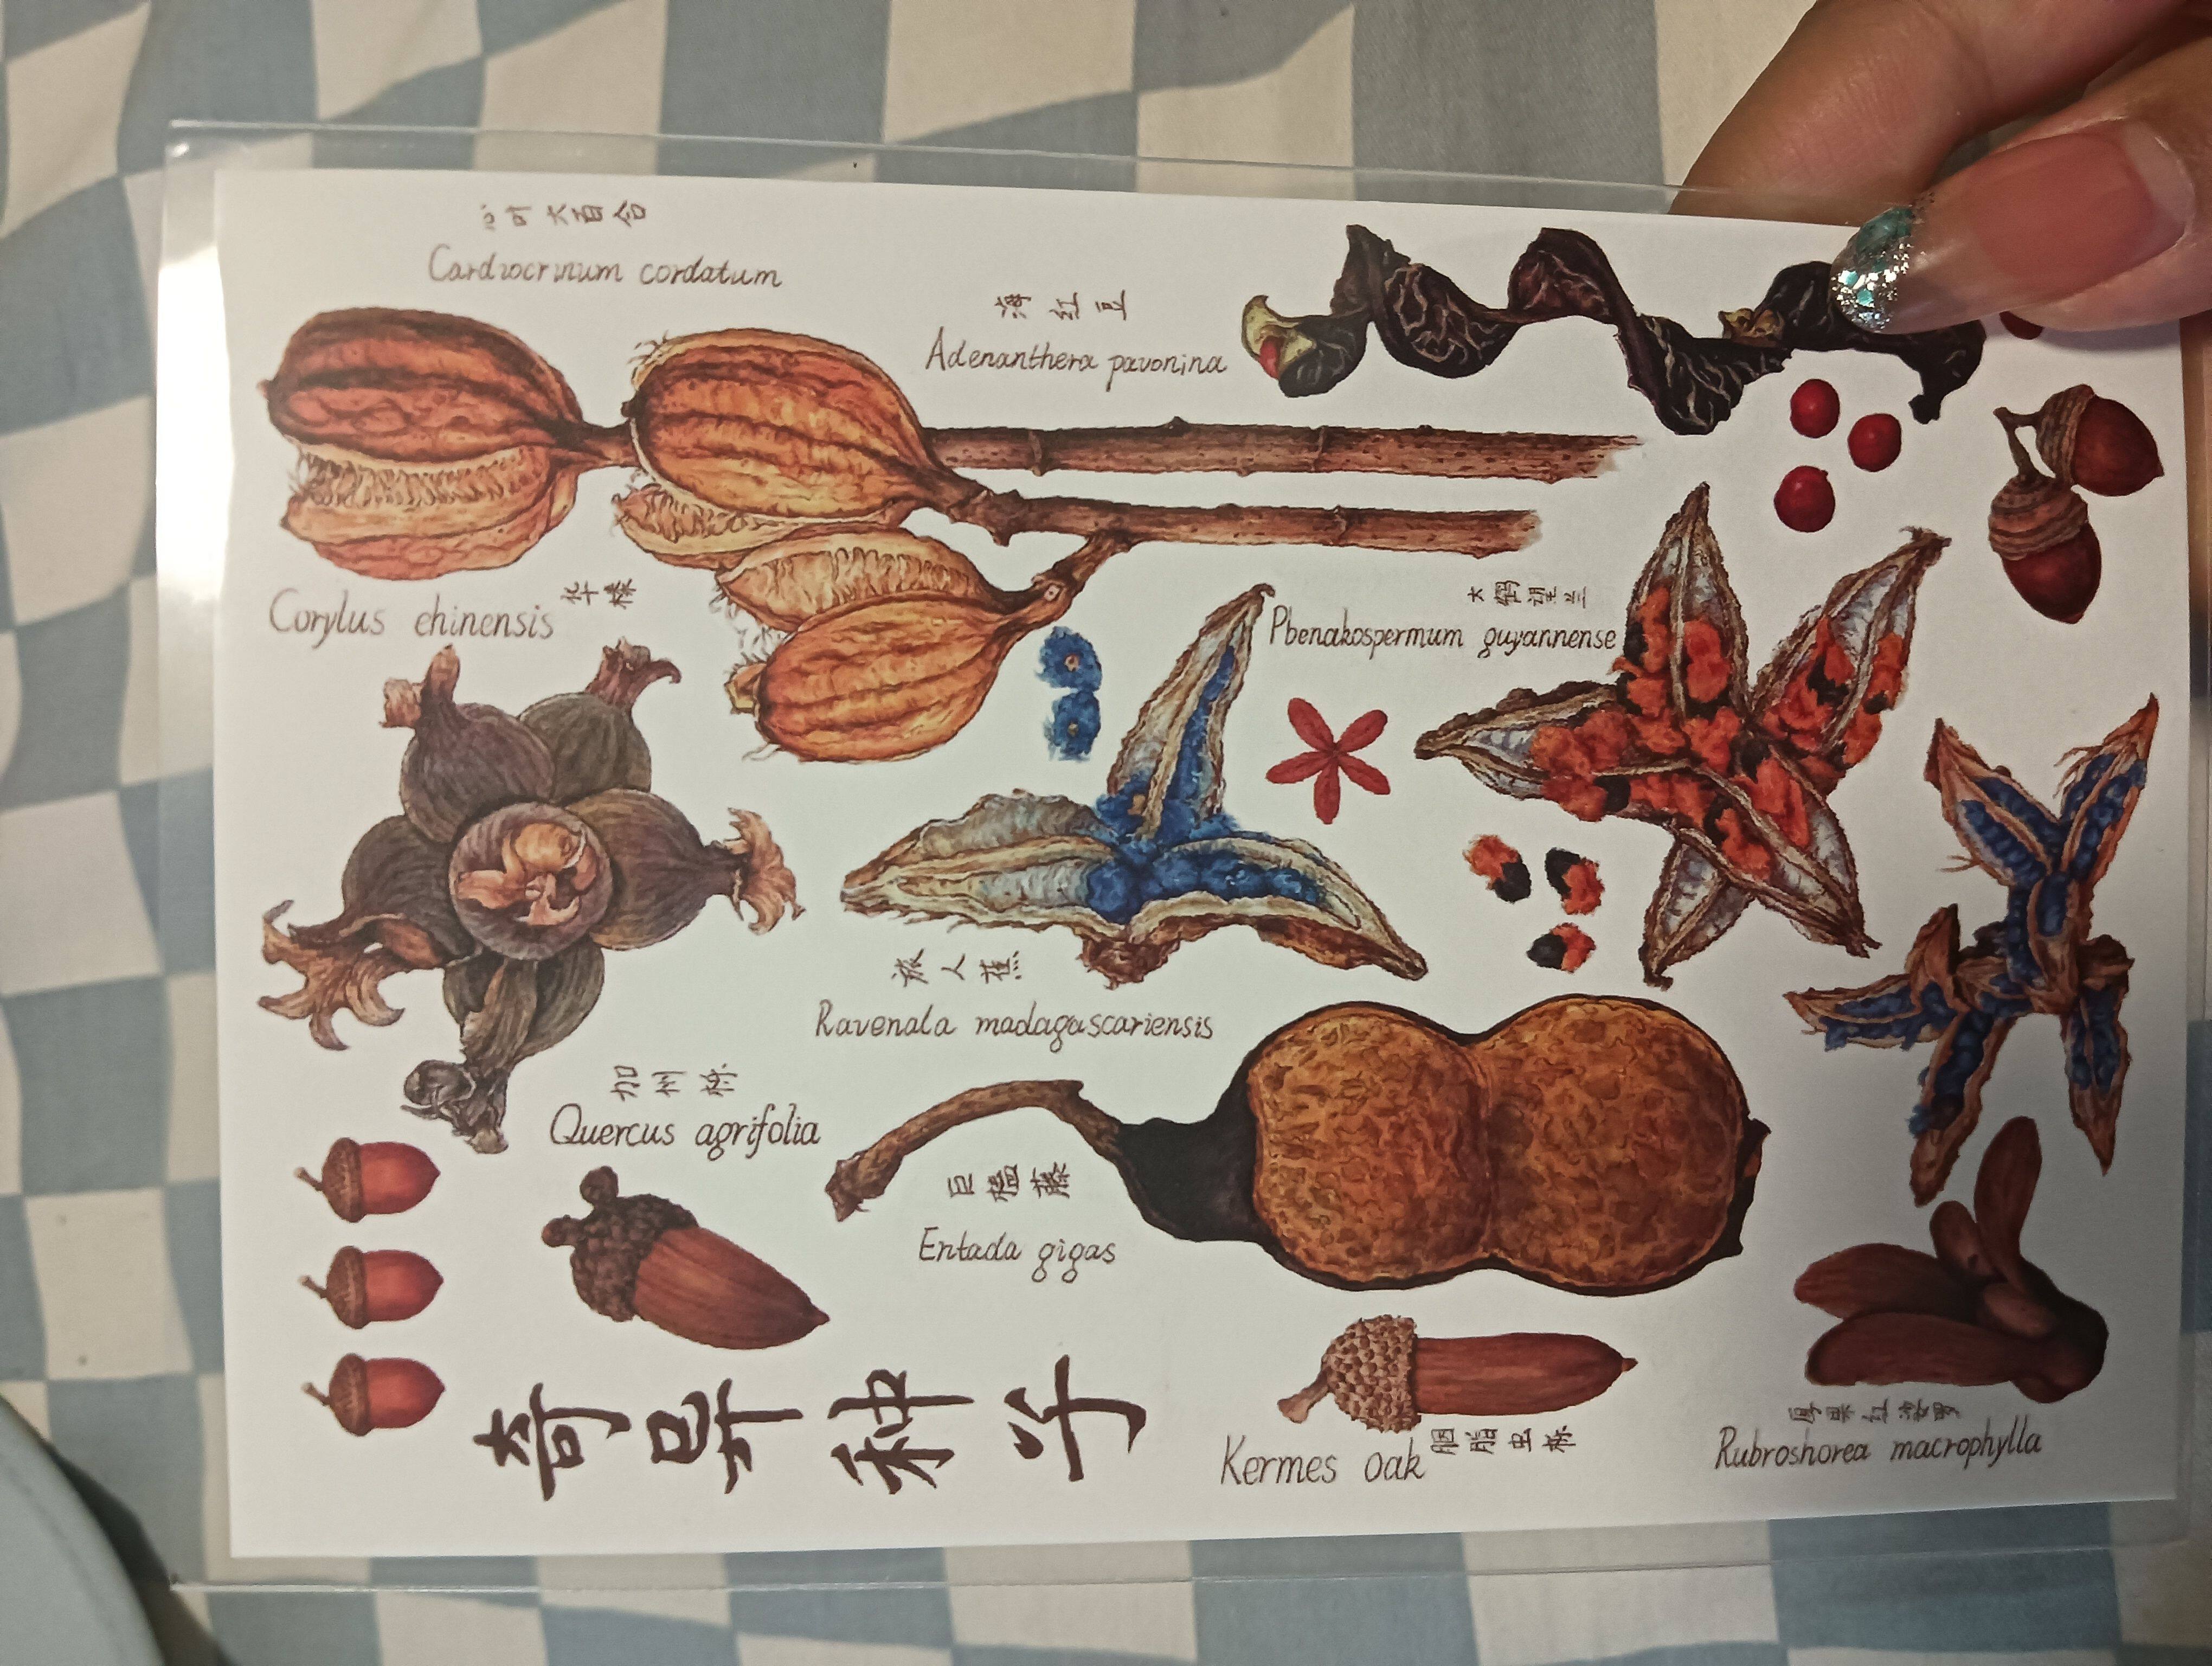 心叶大百合
Cardiocrinum cordatum
海红豆
Adenanthera pavonina
Corylus chinensis 华榛
大鹤望兰
Phenakospermum guyannense
旅人蕉
Ravenala madagascariensis
加州栎
Quercus agrifolia
巨榼藤
Entada gigas
奇异种子
Kermes oak 胭脂虫栎
厚果红娑罗
Rubroshorea macrophylla